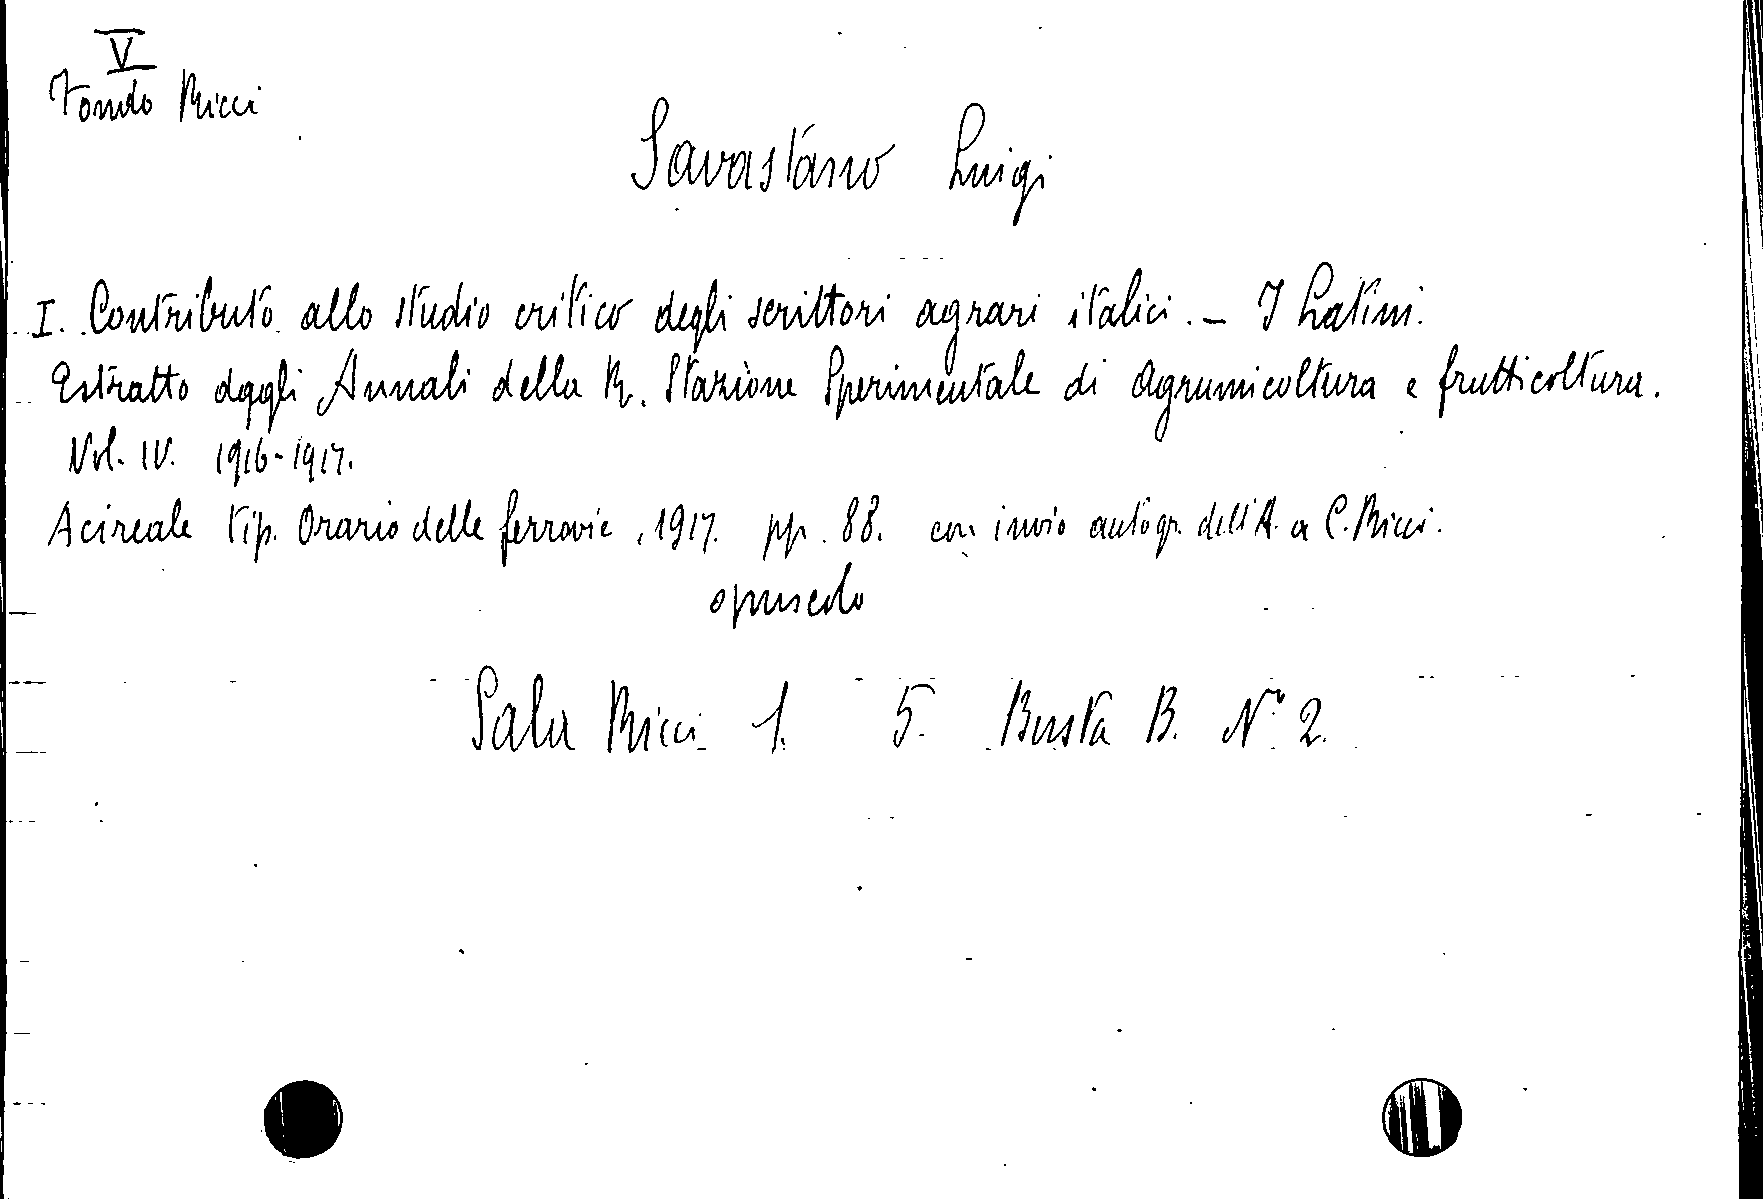 V
Fondo Ricci
Savastano Luigi
I. Contributo allo studio critico degli scrittori agrari italici. - I Latini.
Estratto dagli Annali della R. Stazione Sperimentale di Agrumicoltura e frutticoltura.
Vol. IV. 1916-1917.
Acireale Tip. Orario delle ferrovie, 1917. pp. 88. con invio autogr. dell'A. a C. Ricci.
opuscolo
Sala Ricci 1. 5. Busta B. N° 2.